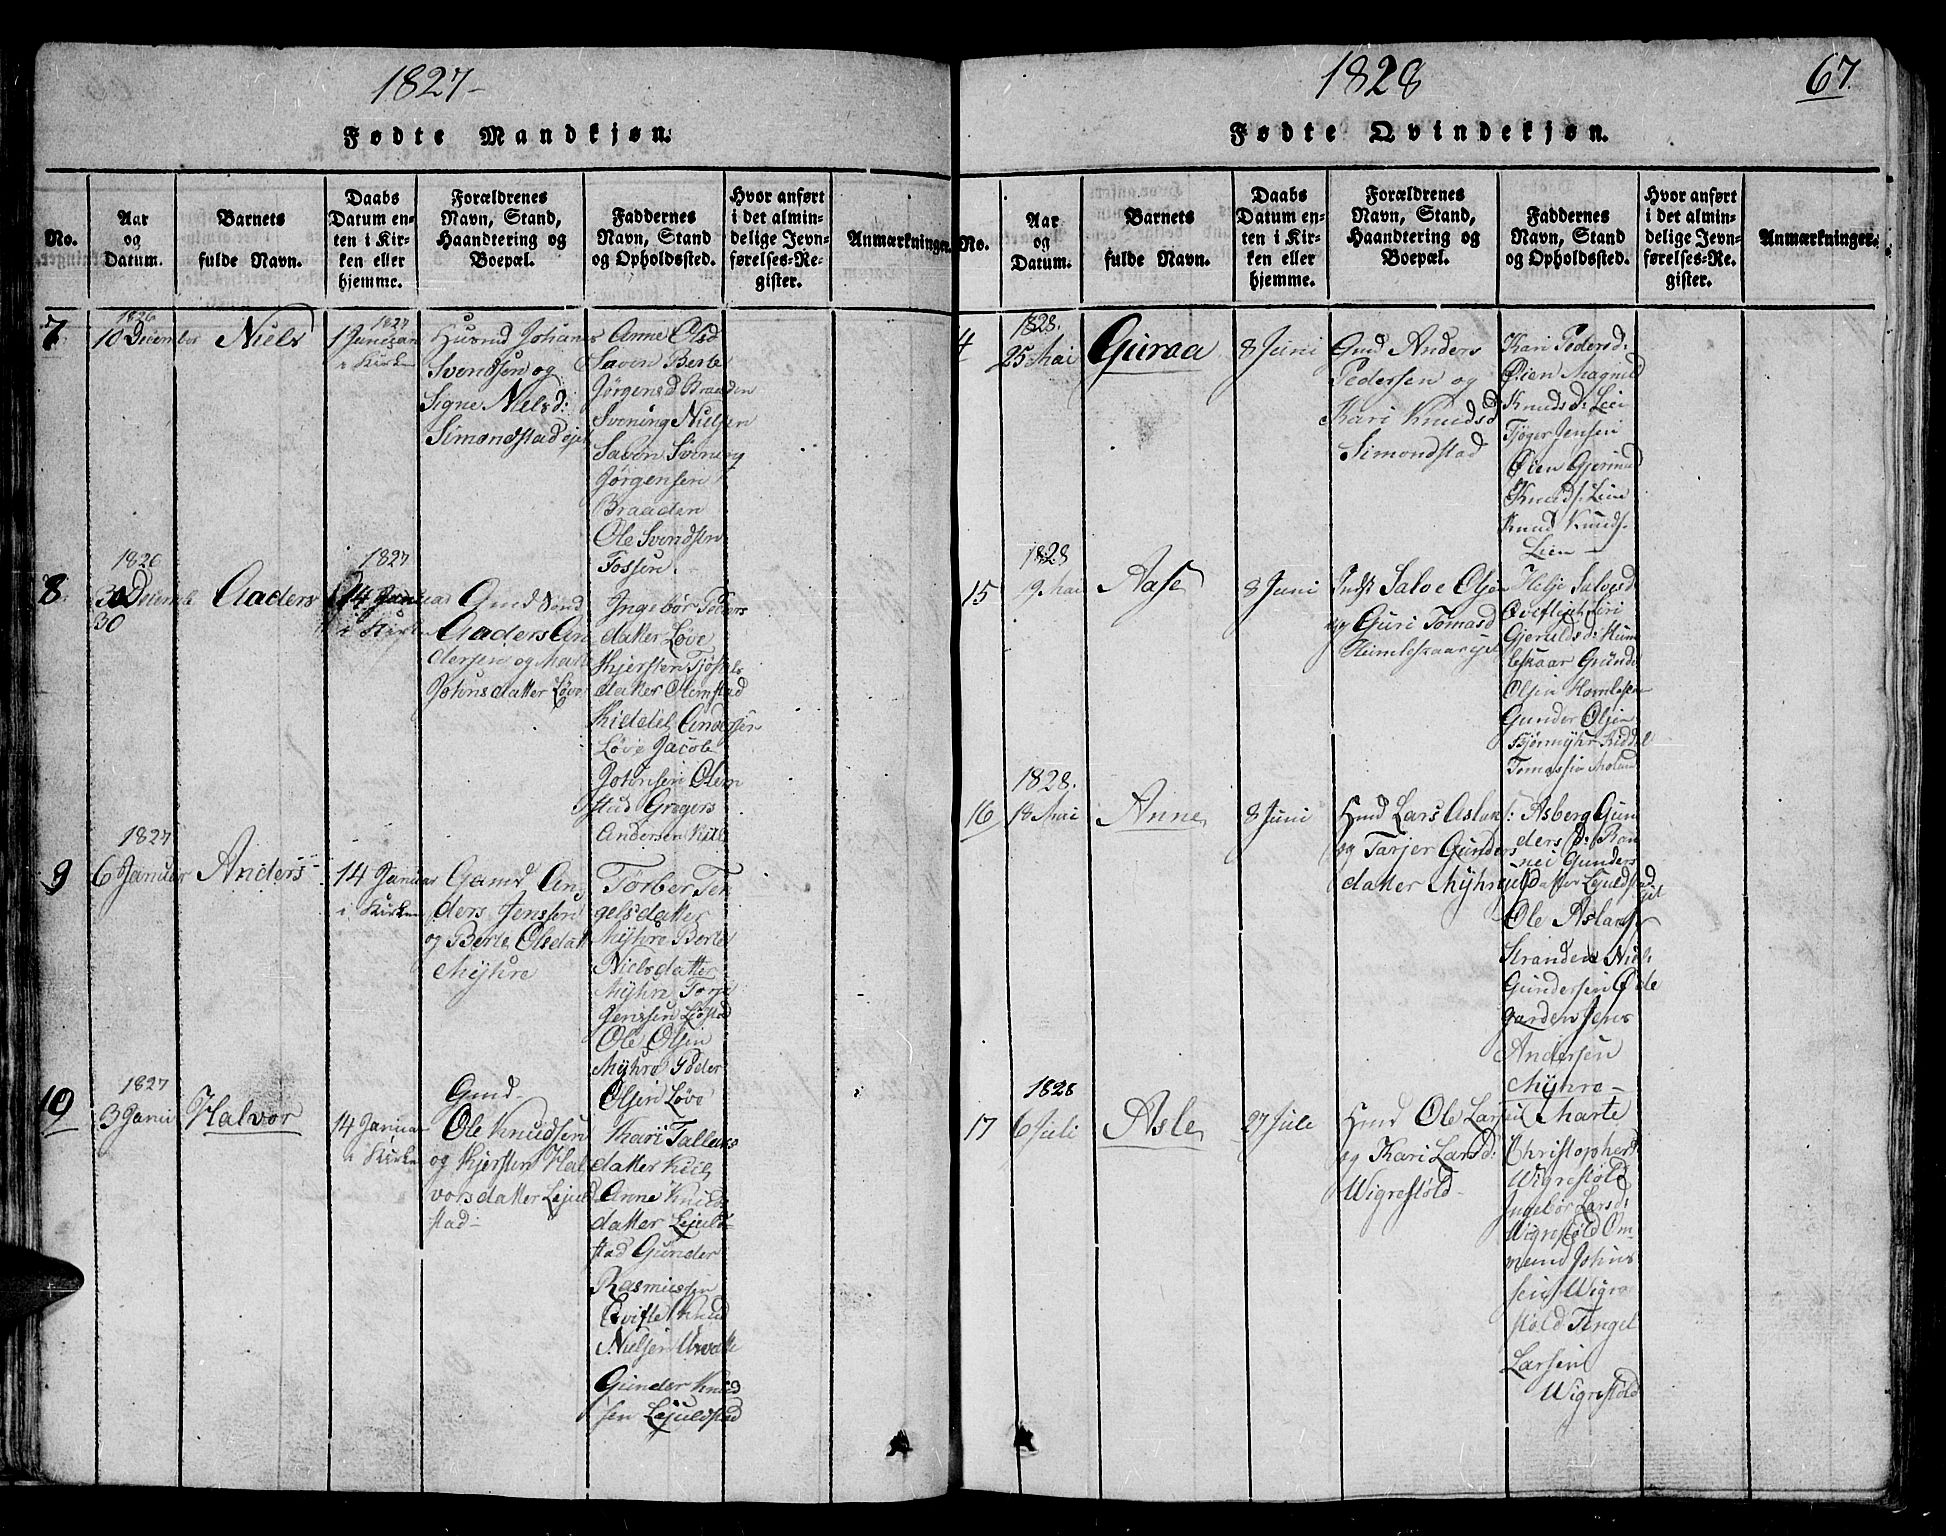 1827
Fødte Mandkjøn.
No.
Aar
og
Datum.
Barnets
fulde Navn.
Daabs
Datum en-
ten i Kir-
ken eller
hjemme.
Forældrenes
Navn, Stand,
Haandtering og
Boepæl.
Faddernes
Navn, Stand
og Opholdssted.
Hvor anført
i det almin-
delige Jevn-
førelses-Re-
gister.
Anmærkninger.
7
1826
10 December
Niels
1827
i Kirken
Johanes
Svendsen og
Signe Nielsd:
Simondstad
Anne Olsd
Saven Berte
Jørgensd Braaden
Svening Nielsen
Saven Svening
Jørgensen
Braaden
Ole Svendsen
Fossen
8
1826
30
Aaders
1827
14 Januar
i Kirken
Gmd
Aaders An
dersen og
Johnsdatter Løve
Ingebor Peders
datter Løve
Kjersten
datter Olimstad
Kiddel Andersen
Løve Jacob
Johnsen Olim
stad Gregers
Andersen
9
1827
6 Januar
Anders
14 Januar
i Kirken
Gamd An
ders Jenssen
og Berte Olsdat
Myhre
Torber Ten
gelsdatter
Myhre Berte
Nielsdatter
Myhre
Jenssen
Ole Olsen
Myhre Peder
Olsen Løve
10
1827
3 Janu
Halvor
14 Januar
i Kirken
Gmd
Ole Knudsen
og Kjersten Hal
vorsdatter Lejuld
stad
Kari Tallevs
datter
Anne Knuds
datter Lejuld
stad Gunder
Rasmussen
Knud
Nielsen
Gunder Knud
sen Lejuldstad
1828
67.
Fødte Qvindekjøn.
No.
Aar
og
Datum.
Barnets
fulde Navn.
Daabs
Datum en-
ten i Kir-
ken eller
hjemme.
Forældrenes
Navn, Stand,
Haandtering og
Boepæl.
Faddernes
Navn, Stand
og Opholdssted.
Hvor anført
i det almin-
delige Jevn-
førelses-Re-
gister.
Anmærkninger.
4
1828.
25 Mai
Guraa
8 Juni
Gmd Anders
Pedersen og
Kari Knudsd
Simondstad
Kari Pedersd:
Øien Magnild
Knudsd: Lien
Jensen
Øien Gjermund
Knuds. Lien
Knud Knuds.
Lien
15
1828
9 Mai
Aase
8 Juni
Indst Salve Olsen
og Guri Tomasd
Salvesd
Gjeruldsd: Hum
leskaar Gunde
Olsen
Gunder Olsen
16
1828.
18 Mai
Anne
8 Juni
Hmd Lars Aslaks:
og Tarjer Gunders
datter Myhre
Asberg Gun
ders D: Ron
nei Gunders
datter Lejuldstad
Ole Aslaks
Stranden Niels
Gundersen Øde
garden Jens
Andersen
Myhre
17
1828
6 Juli
Asle
27 Jule
Hmd Ole Larsen
og Kari Larsd:
Wigrestøld
Marte
Christophersd
Wigrestøld
Ingebor Larsd:
Wigrestøld Om
mund Johns
sen Wigre
støld Tengel
Larsen
Wigrestøld